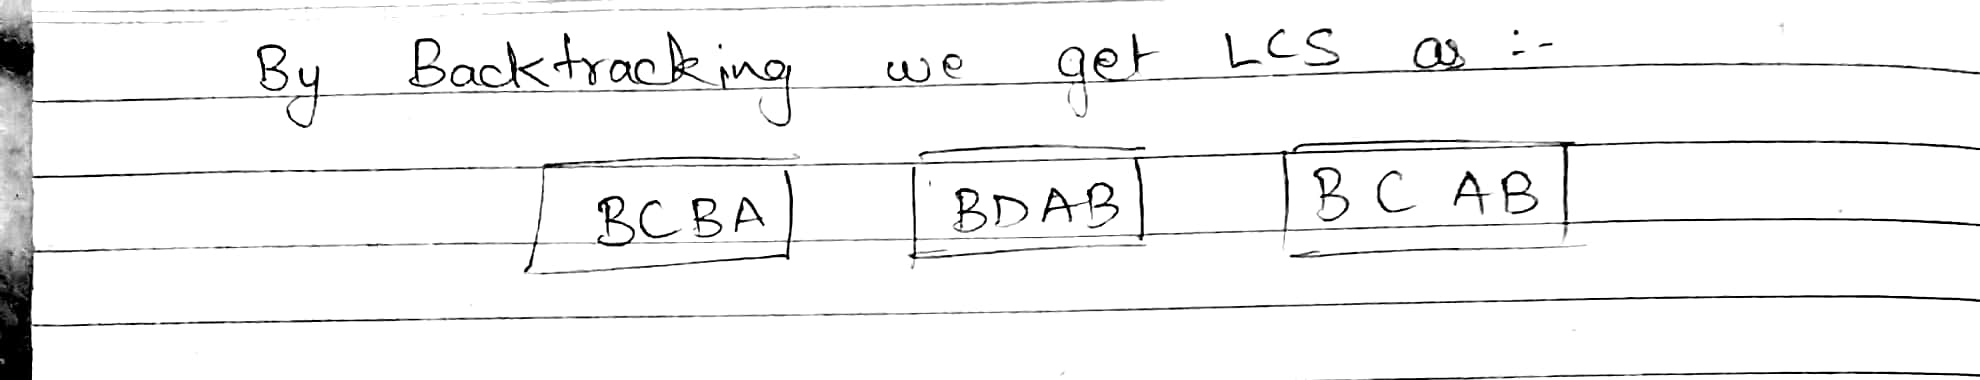 By Backtracking we get LCS as :-
BCBA BDAB BCAB